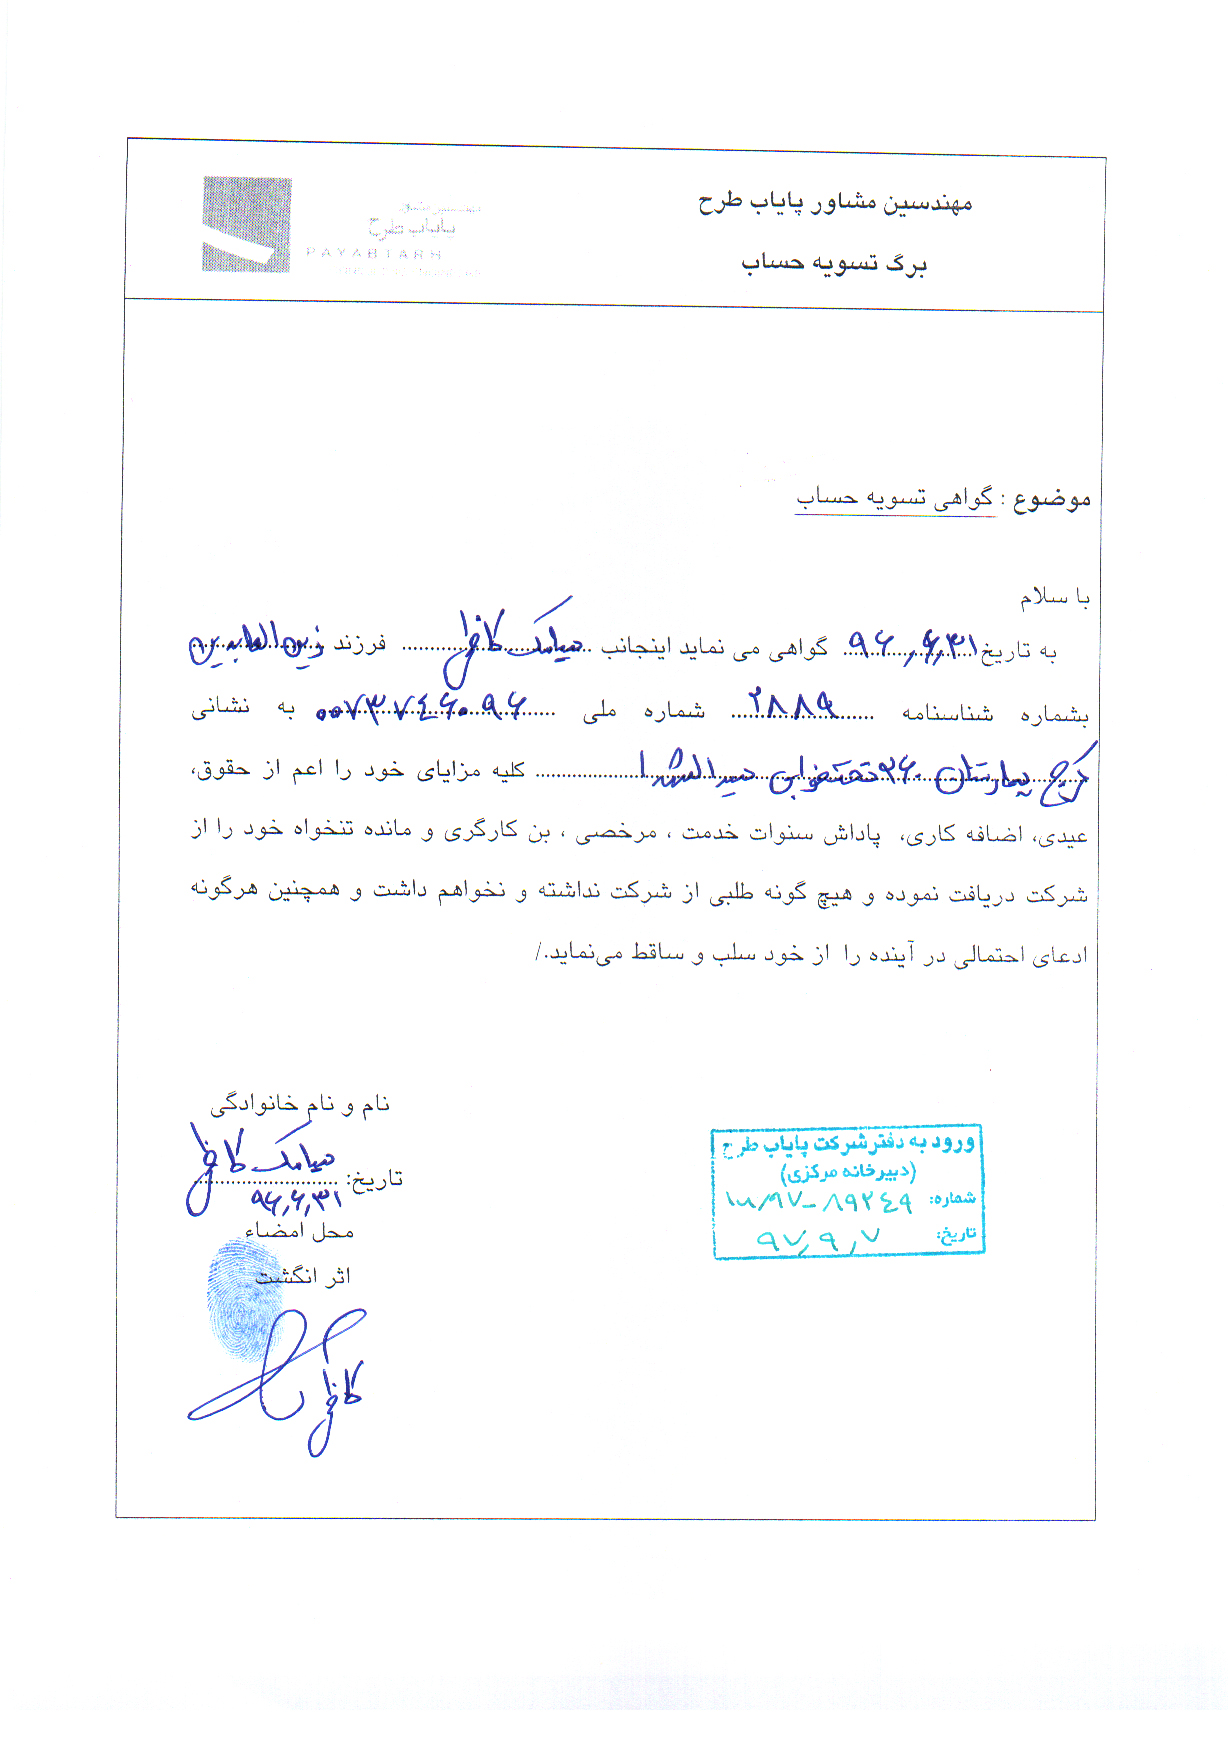 مهندسین مشاور پایاب طرح
برگ تسویه حساب
پایاب طرح
PAYABTARH
موضوع : گواهی تسویه حساب
با سلام
به تاریخ ۹۶/۶/۳۱ گواهی می نماید اینجانب سیامک کاظمی فرزند زین العابدین
بشماره شناسنامه ۲۸۸۹ شماره ملی ۰۰۷۳۷۴۶۰۹۶ به نشانی
کرج بیمارستان ۲۶۰ تختخوابی سیدالشهدا کلیه مزایای خود را اعم از حقوق،
عیدی، اضافه کاری، پاداش سنوات خدمت ، مرخصی ، بن کارگری و مانده تنخواه خود را از
شرکت دریافت نموده و هیچ گونه طلبی از شرکت نداشته و نخواهم داشت و همچنین هرگونه
ادعای احتمالی در آینده را از خود سلب و ساقط می‌نماید./
نام و نام خانوادگی
سیامک کاظمی
تاریخ: ۹۶/۶/۳۱
محل امضاء
اثر انگشت
کاظمی
ورود به دفتر شرکت پایاب طرح
(دبیرخانه مرکزی)
شماره: ۱۰۸/۹۷-۸۹۲۴۹
تاریخ: ۹۷/۹/۷